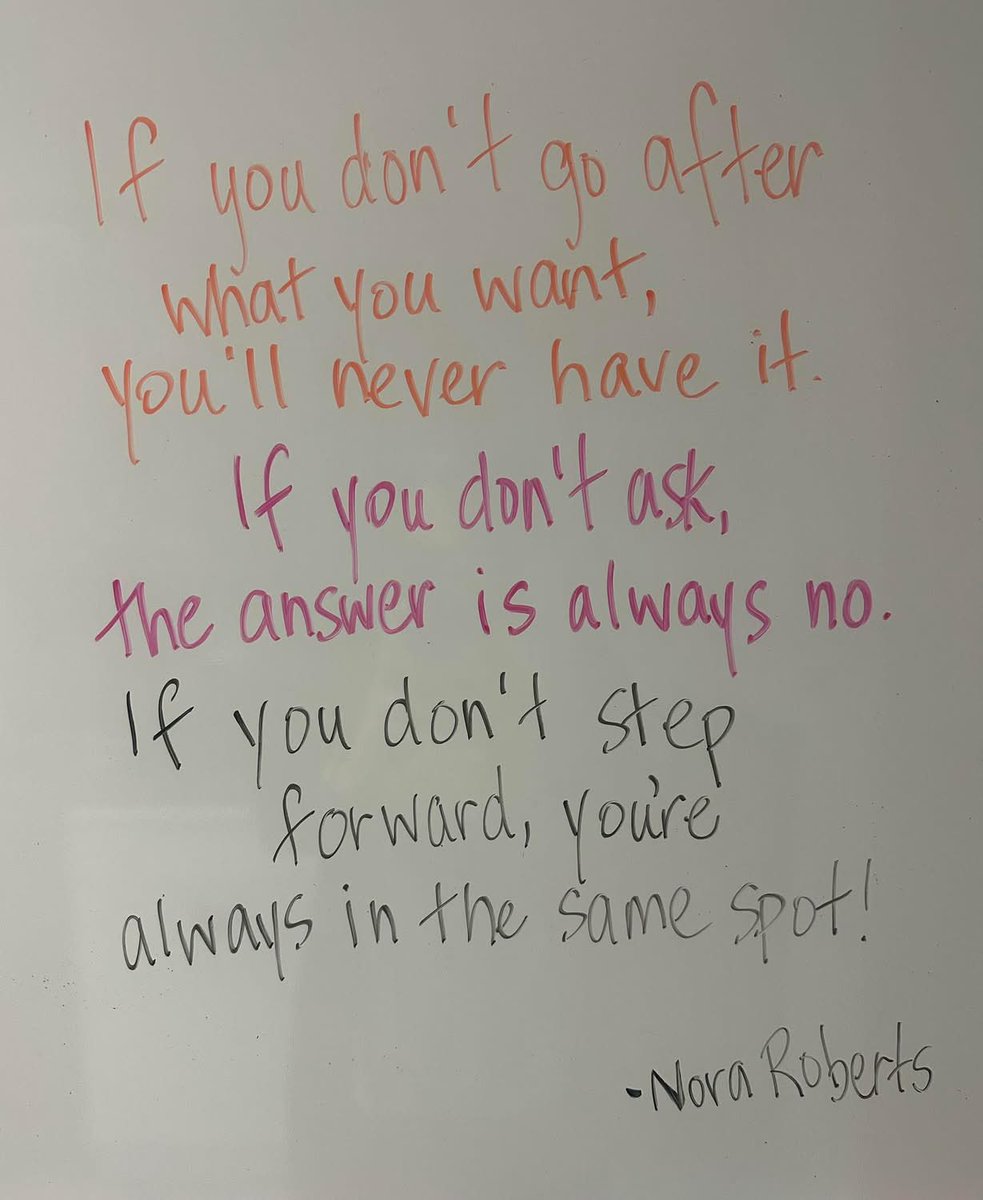 If you don't go after
what you want,
you'll never have it.
If you don't ask,
the answer is always no.
If you don't step
forward, you're
always in the same spot!
-Nora Roberts